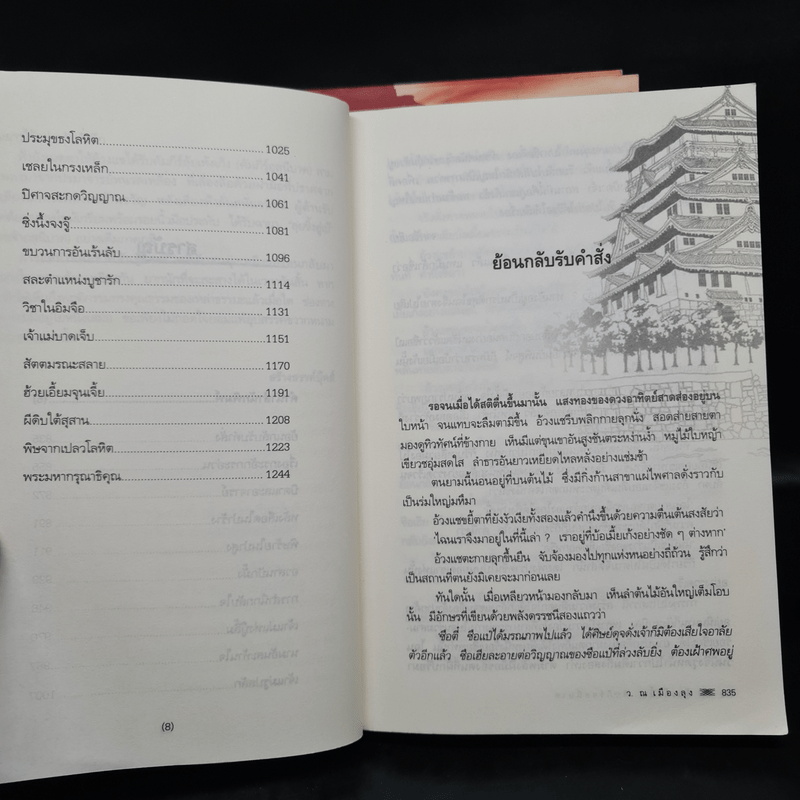 ประมุขธงโลหิต 1025
เชลยในกรงเหล็ก 1041
ปีศาจสะกดวิญญาณ 1061
ซิ่งนี้งจงจู๊ 1081
ขบวนการอันเร้นลับ 1096
สละตำแหน่งบูชารัก 1114
วิชาในอิมจือ 1131
เจ้าแม่บาดเจ็บ 1151
สัตตมรณะสลาย 1170
ฮ้วยเอี้ยมจุนเจี้ย 1191
ผีดิบใต้สุสาน 1208
พิษจากเปลวโลหิต 1223
พระมหากรุณาธิคุณ 1244
(8)
ย้อนกลับรับคำสั่ง
รอจนเมื่อได้สติตื่นขึ้นมานั้น แสงทองของดวงอาทิตย์สาดส่องอยู่บน
ใบหน้า จนแทบจะลืมตามิขึ้น อ้วงแชรีบพลิกกายลุกนั่ง สอดส่ายสายตา
มองดูทิวทัศน์ที่ข้างกาย เห็นมีแต่ขุนเขาอันสูงชันตระหง่านง้ำ หมู่ไม้ใบหญ้า
เขียวชอุ่มสดใส ลำธารอันยาวเหยียดไหลหลั่งอย่างแช่มช้า
ตนยามนี้นอนอยู่ที่บนต้นไม้ ซึ่งมีกิ่งก้านสาขาแผ่ไพศาลดั่งราวกับ
เป็นร่มใหญ่มหึมา
อ้วงแชขยี้ตาที่ยังงัวเงียทั้งสองแล้วคำนึงขึ้นด้วยความตื่นเต้นสงสัยว่า
'ไฉนเราจึงมาอยู่ในที่นี้เล่า ? เราอยู่ที่บ้อเมี้ยเก้งอย่างชัด ๆ ต่างหาก'
อ้วงแชตะกายลุกขึ้นยืน จับจ้องมองไปทุกแห่งหนอย่างถี่ถ้วน รู้สึกว่า
เป็นสถานที่ตนยังมิเคยจะมาก่อนเลย
ทันใดนั้น เมื่อเหลียวหน้ามองกลับมา เห็นลำต้นไม้อันใหญ่เต็มโอบ
นั้น มีอักษรที่เขียนด้วยพลังดรรชนีสองแถวว่า
'ซือตี๋ ซือแป๋ได้มรณภาพไปแล้ว ได้ศิษย์ดุจดั่งเจ้าก็มิต้องเสียใจอาลัย
ตัวอีกแล้ว ซือเฮียละอายต่อวิญญาณของซือแป๋ที่ล่วงลับยิ่ง ต้องเฝ้าศพอยู่
ว. ณ เมืองลุง 835